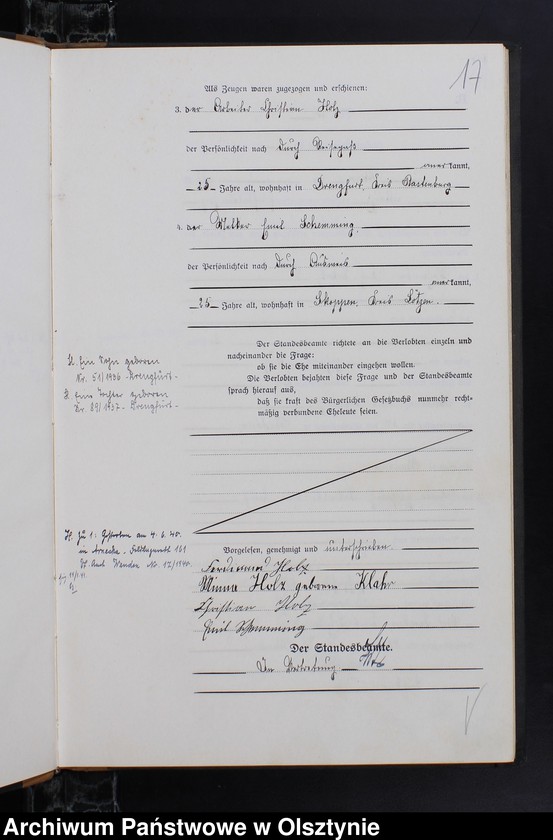 17
Als Zeugen waren zugezogen und erschienen:
3. der Arbeiter Christian Holz
der Persönlichkeit nach durch Reisepaß
anerkannt,
25 Jahre alt, wohnhaft in Drengfurt, Kreis Rastenburg
4. der Melker Emil Schemming
der Persönlichkeit nach durch Ausweis
anerkannt,
25 Jahre alt, wohnhaft in Skoppen, Kreis Lötzen.
Der Standesbeamte richtete an die Verlobten einzeln und
nacheinander die Frage:
ob sie die Ehe miteinander eingehen wollen.
Die Verlobten bejahten diese Frage und der Standesbeamte
sprach hierauf aus,
daß sie kraft des Bürgerlichen Gesetzbuchs nunmehr recht-
mäßig verbundene Eheleute seien.
Ein Sohn geboren
Nr. 51/1936 - Drengfurt -
Eine Tochter geboren
Nr. 89/1937 - Drengfurt -
zu 1: Gestorben am 4. 6. 40.
in Feldlazarett 161
Nr. 12/1940.
Vorgelesen, genehmigt und unterschrieben
Ferdinand Holz
Minna Holz geborene Klahr
Christian Holz
Emil Schemming
Der Standesbeamte.
In Vertretung
Archiwum Państwowe w Olsztynie